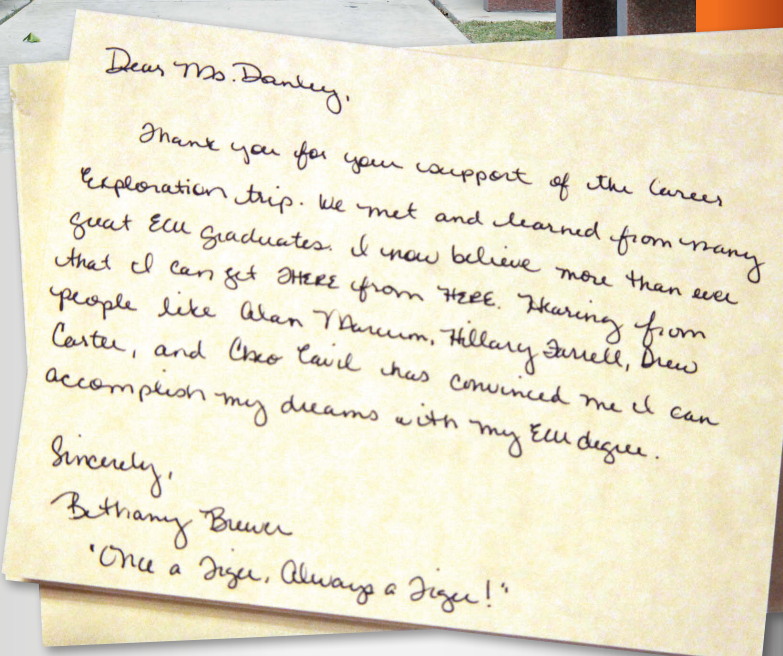 Dear Ms. Danley,
Thank you for your support of the Career
Exploration trip. We met and learned from many
great ECU graduates. I now believe more than ever
that I can get THERE from HERE. Hearing from
people like Alan Marcum, Hillary Farrell, Drew
Carter, and Cavil has convinced me I can
accomplish my dreams with my ECU degree.
Sincerely,
Bethany Brewer
"Once a Tiger, Always a Tiger!"